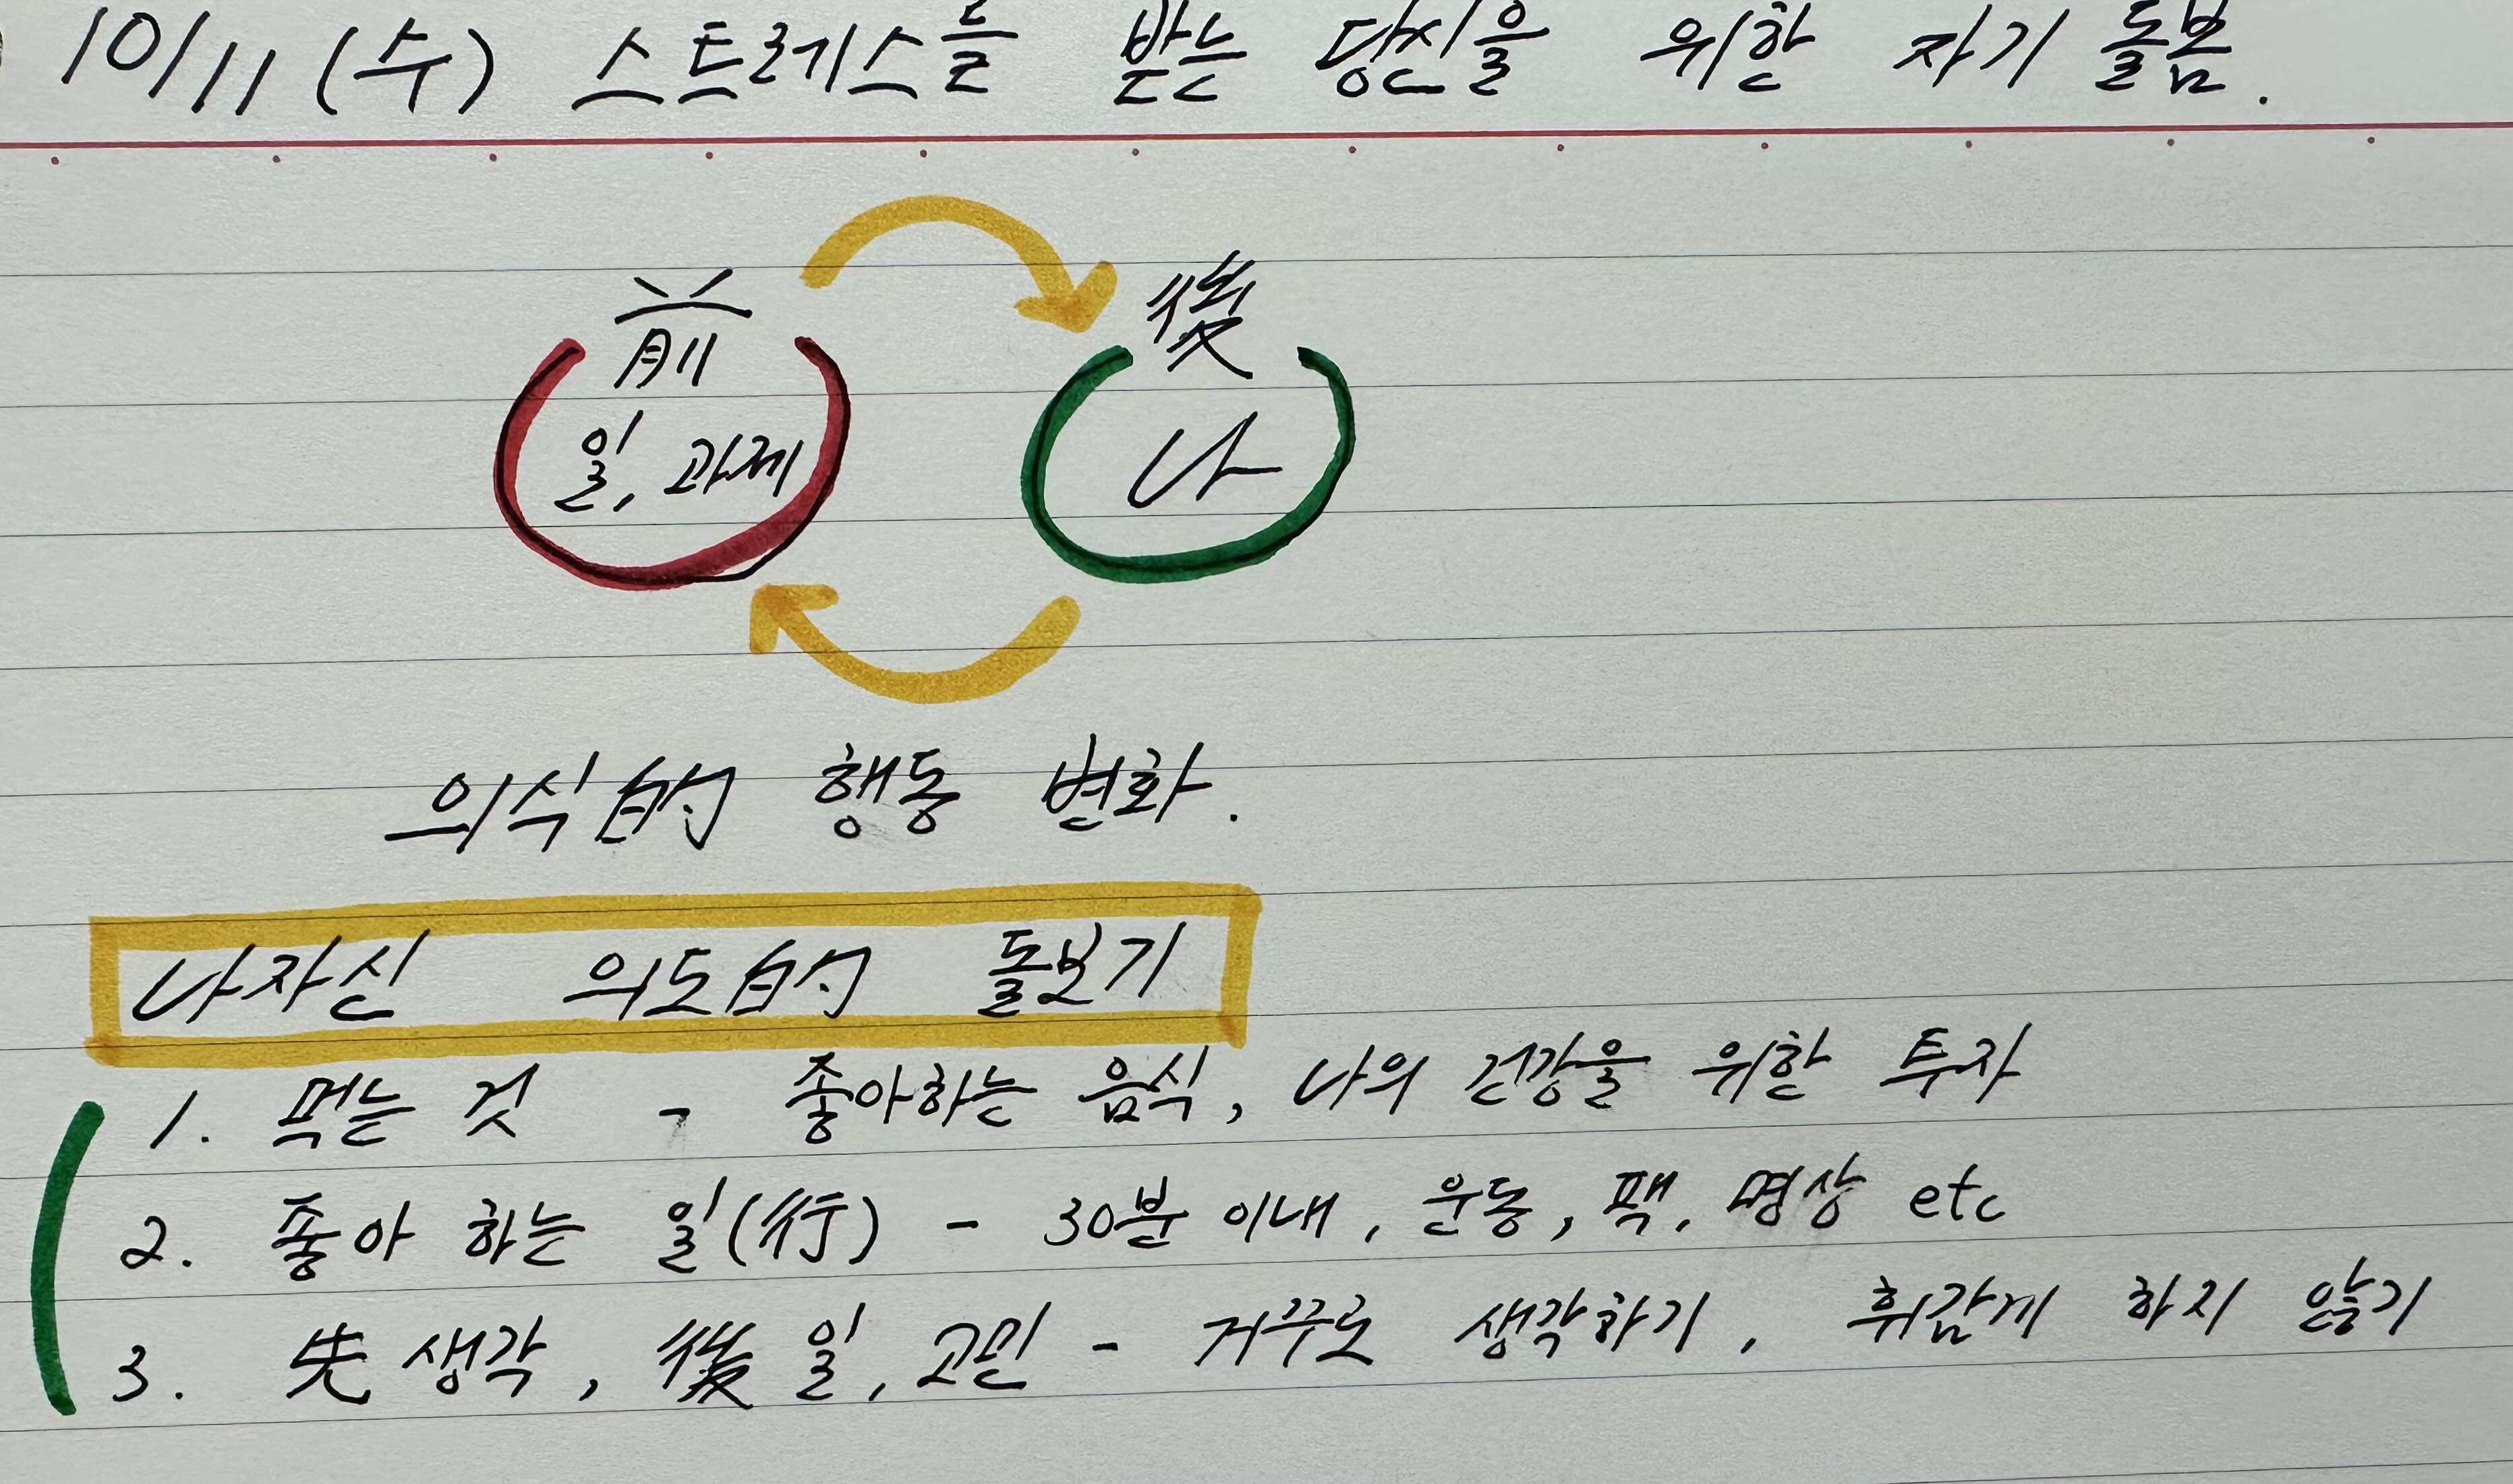 10/11 (수) 스트레스를 받는 당신을 위한 자기 돌봄.
前 後
일, 과제 나
의식的 행동 변화.
나자신 의도的 돌보기
1. 먹는 것 - 좋아하는 음식, 나의 건강을 위한 투자
2. 좋아 하는 일(行) - 30분 이내, 운동, 팩, 명상 etc
3. 先 생각, 後 일, 고민 - 거꾸로 생각하기, 휘감게 하지 않기